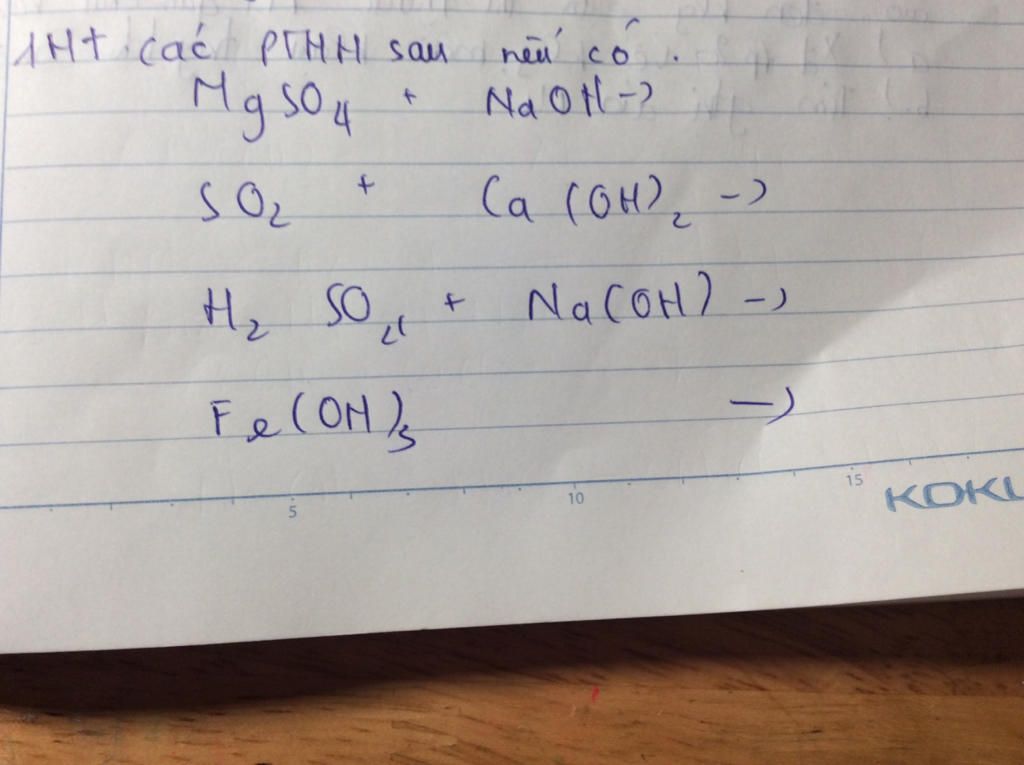 1 Ht các PTHH sau nếu có.
MgSO4 + NaOH ->
SO2 + Ca(OH)2 ->
H2 SO4 + Na(OH) ->
Fe(OH)3 ->
5 10 15 KOKU